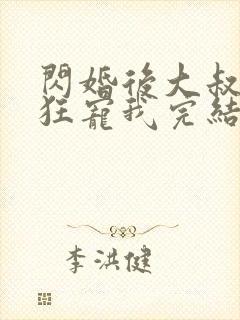 閃婚後大叔
狂寵我完結
李洪健